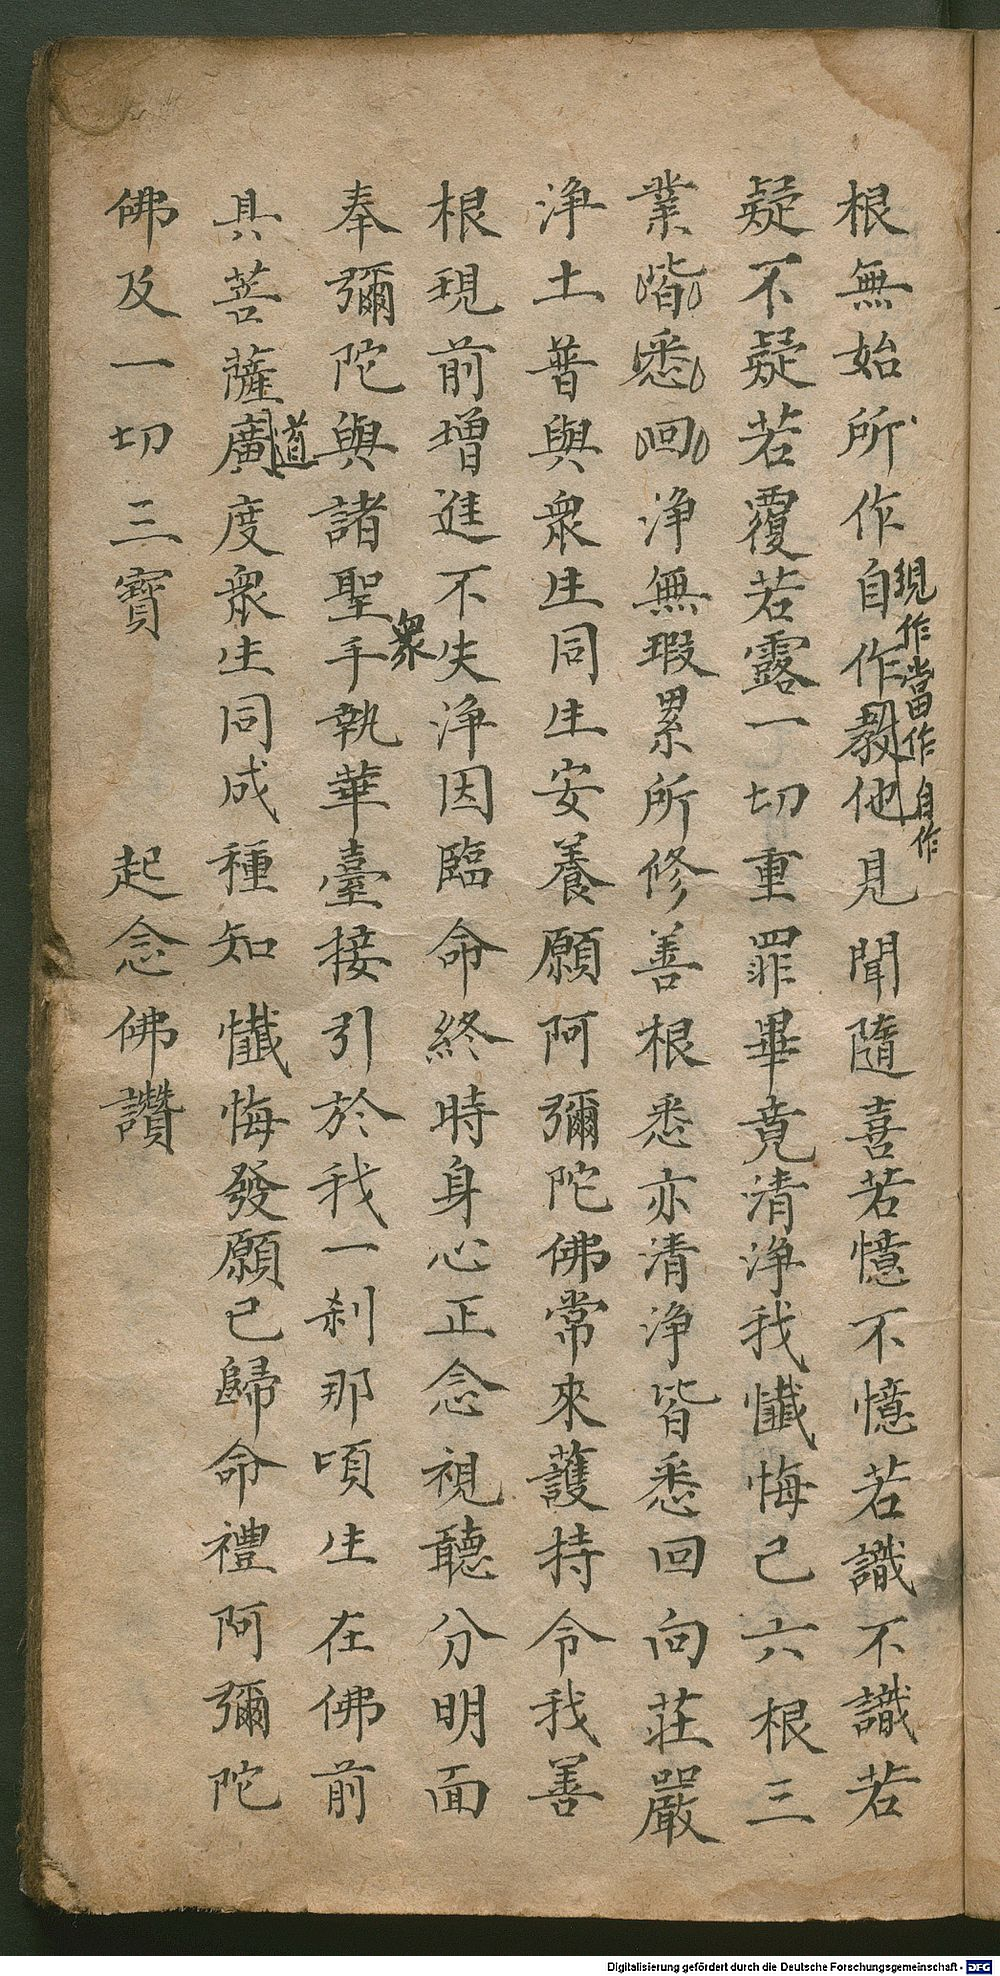 根無始所作自作教他見聞隨喜若憶不憶若識不識若
現作當作自作
疑不疑若覆若露一切重罪畢竟清淨我懺悔已六根三
業皆悉回淨無瑕累所修善根悉亦清淨皆悉回向莊嚴
淨土普與衆生同生安養願阿彌陀佛常來護持令我善
根現前增進不失淨因臨命終時身心正念視聽分明面
奉彌陀與諸聖手執華臺接引於我一刹那頃生在佛前
衆
具菩薩廣度衆生同成種知懺悔發願已歸命禮阿彌陀
道
佛及一切三寶 起念佛讚
Digitalisierung gefördert durch die Deutsche Forschungsgemeinschaft - DFG